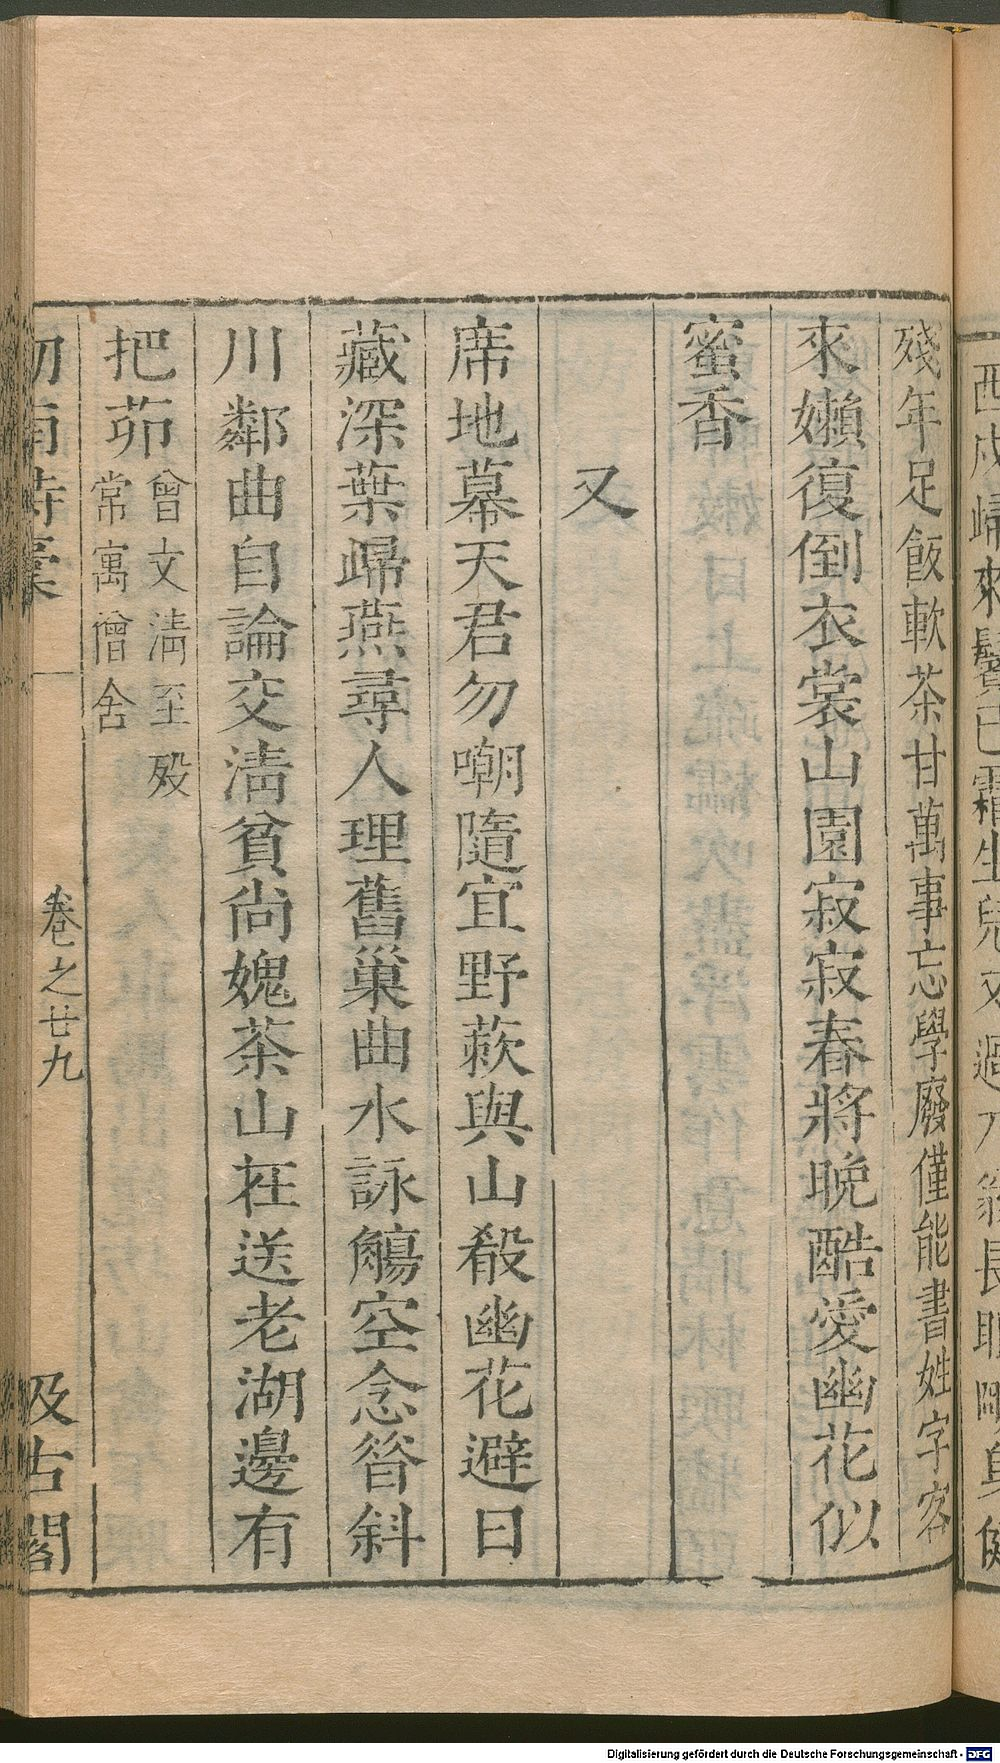 殘年足飯軟茶甘萬事忘學廢僅能書姓字客
來嬾復倒衣裳山園寂寂春將晚酷愛幽花似
蜜香
又
席地幕天君勿嘲隨宜野蔌與山殽幽花避日
藏深葉歸燕尋人理舊巢曲水詠觴空念昝斜
川鄰曲自論交清貧尚媿茶山在送老湖邊有
把茆
曾文清至歿
常寓僧舍
劍南詩稾
卷之廿九
汲古閣
Digitalisierung gefördert durch die Deutsche Forschungsgemeinschaft - DFG